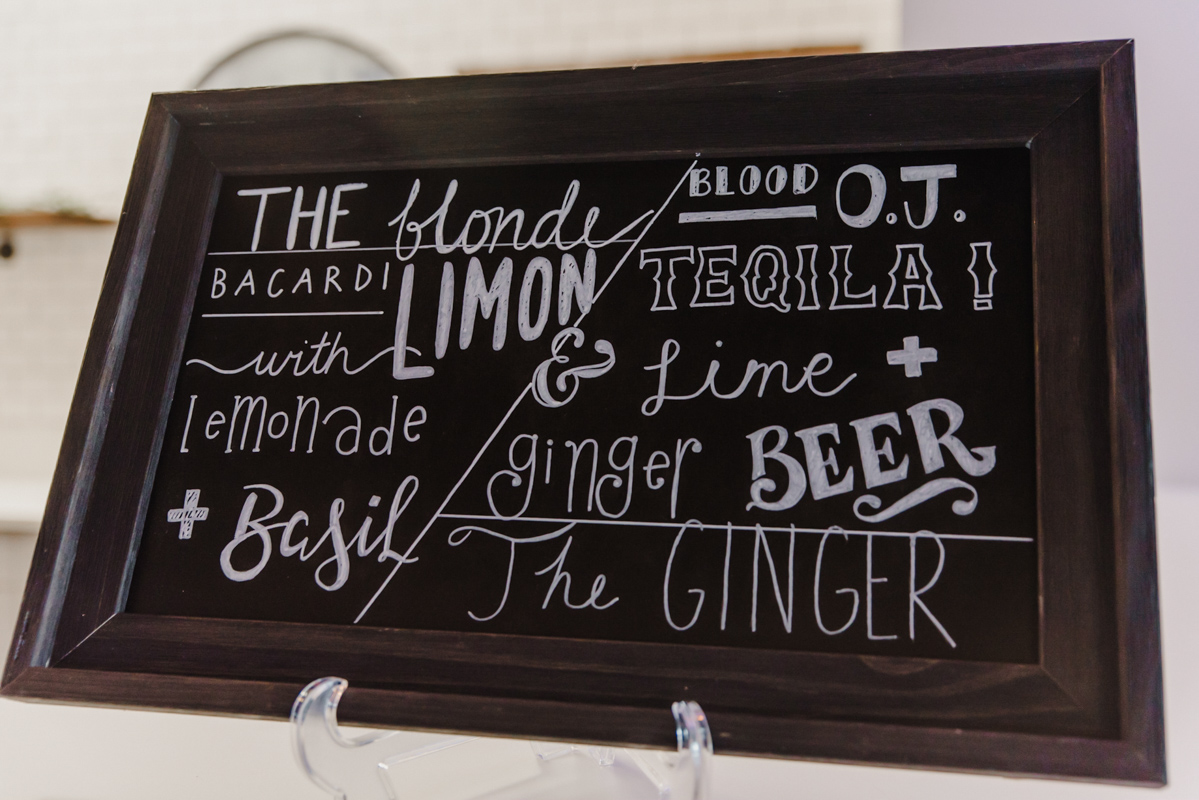 THE blonde
BACARDI LIMON
with
lemonade
+ Basil
BLOOD O.J.
TEQILA!
& Lime +
ginger BEER
The GINGER